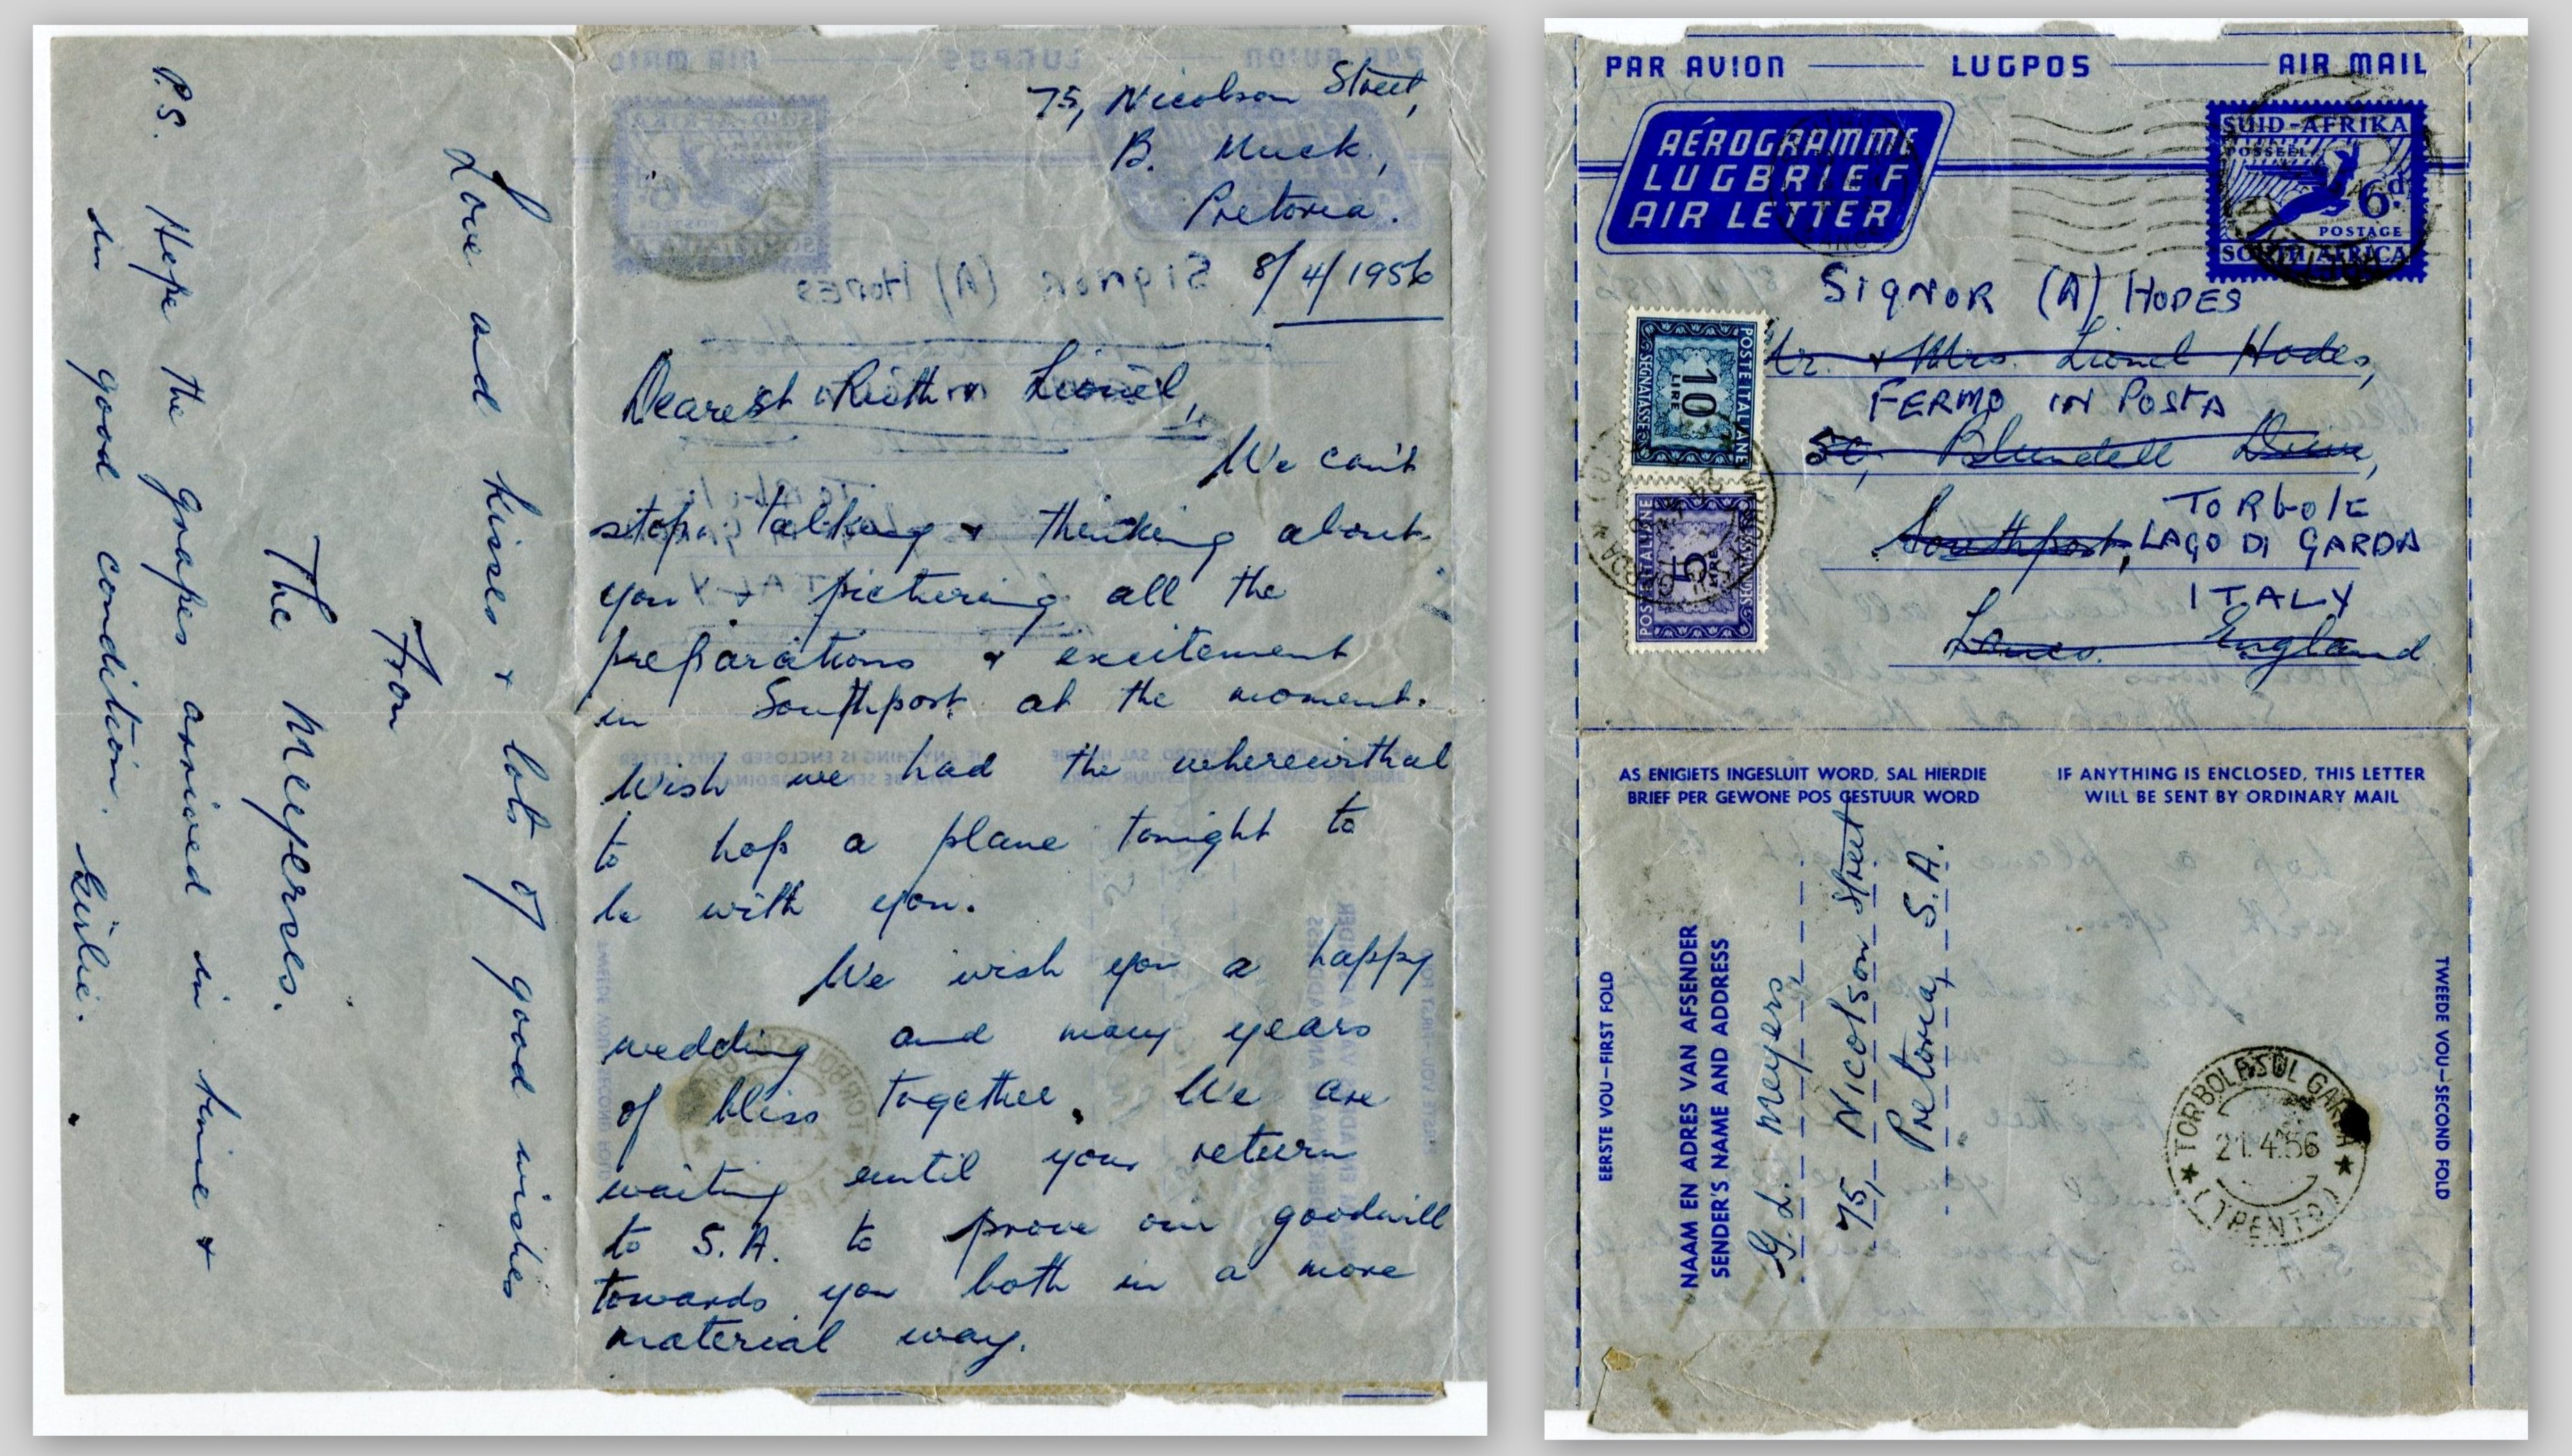 75, Nicolson Street,
B. Muck.,
Pretoria.
8/4/1956
Dearest Ruth & Lionel,
We can't
stop talking & thinking about
you & pictering all the
preparations & excitement
in Southport at the moment.
Wish we had the wherewithal
to hop a plane tonight to
be with you.
We wish you a happy
wedding and many years
of bliss together. We are
waiting until your return
to S.A. to prove our goodwill
towards you both in a more
material way.
Love and kisses & lots of good wishes
From
The Meyerses.
P.S. Hope the grapes arrived in time &
in good condition. Girlie.
PAR AVION LUGPOS AIR MAIL
AÉROGRAMME
LUGBRIEF
AIR LETTER
SUID-AFRIKA
POSSEËL
6d
POSTAGE
SOUTH AFRICA
SIGNOR (A) HODES
Mr. & Mrs. Lionel Hodes,
FERMO IN POSTA
Blundell Drive,
TORbOlE
Southport, LAGO DI GARDA
ITALY
Lancs. England
POSTE ITALIANE
10
LIRE
SEGNATASSE
POSTE ITALIANE
5
LIRE
SEGNATASSE
AS ENIGIETS INGESLUIT WORD, SAL HIERDIE
BRIEF PER GEWONE POS GESTUUR WORD
IF ANYTHING IS ENCLOSED, THIS LETTER
WILL BE SENT BY ORDINARY MAIL
EERSTE VOU—FIRST FOLD
NAAM EN ADRES VAN AFSENDER
SENDER'S NAME AND ADDRESS
G. L. Meyers
75, Nicolson Street
Pretoria, S.A.
TWEEDE VOU—SECOND FOLD
TORBOLE SUL GARDA
21.4.56
(TRENTO)